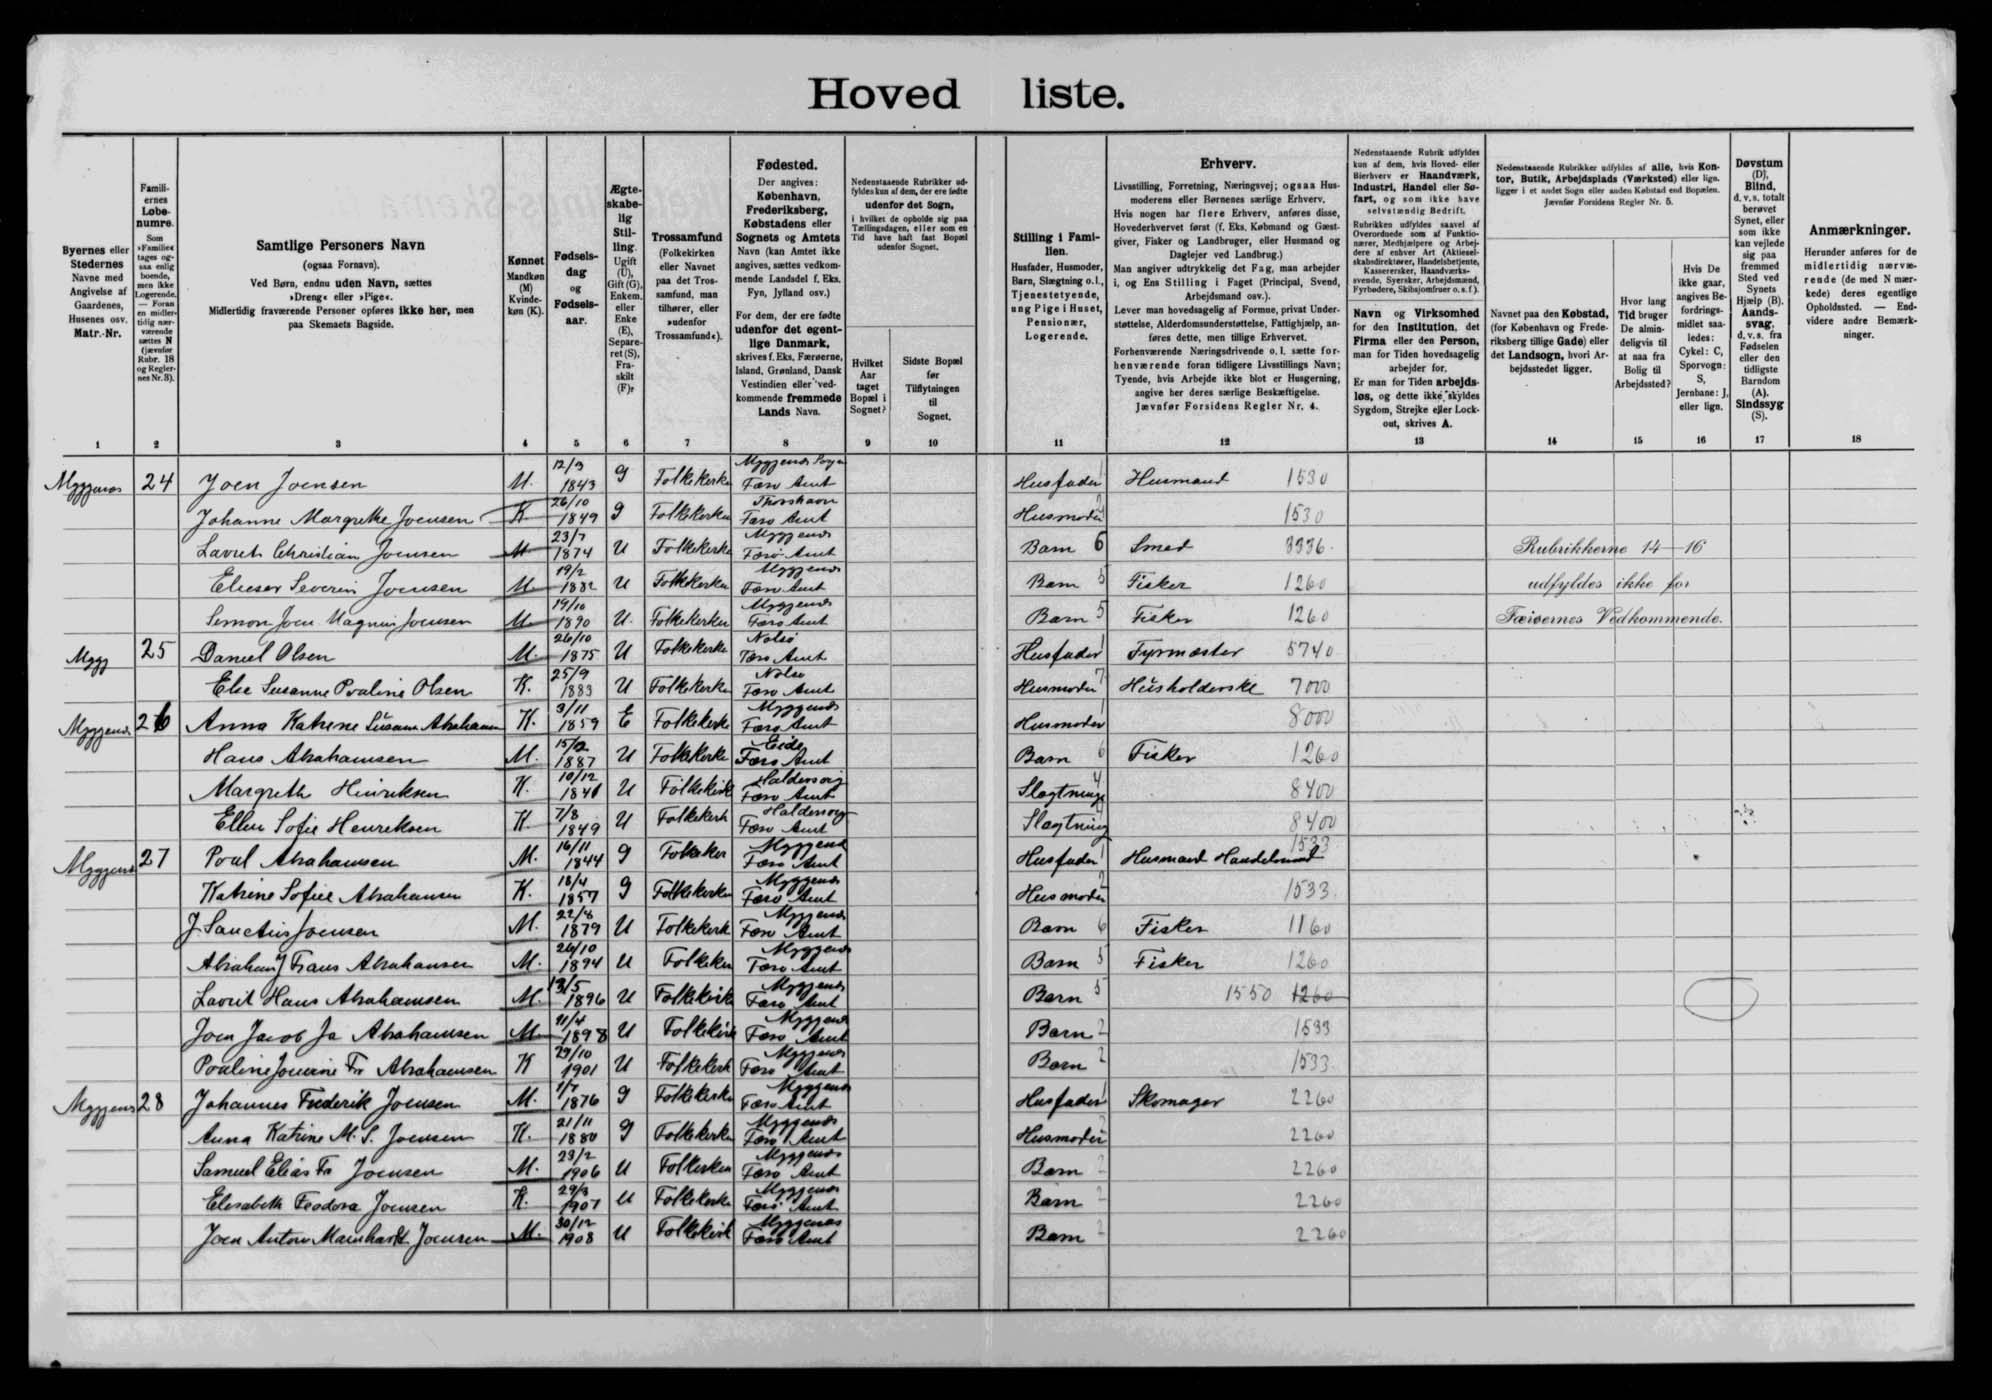 Hoved liste.
Byernes eller Stedernes Navne med Angivelse af Gaardenes, Husenes osv. Matr.-Nr.
Famili-ernes Løbe-numre. Som »Familie« tages og-saa enlig boende, men ikke Logerende. — Foran en midler-tidig nær-værende sættes N (jævnfør Rubr. 18 og Regler-nes Nr. 3).
Samtlige Personers Navn (ogsaa Fornavn). Ved Børn, endnu uden Navn, sættes »Dreng« eller »Pige«. Midlertidig fraværende Personer opføres ikke her, men paa Skemaets Bagside.
Kønnet Mandkøn (M) Kvinde-køn (K).
Fødsels-dag og Fødsels-aar.
Ægte-skabe-lig Stil-ling. Ugift (U), Gift (G), Enkem. eller Enke (E), Separe-ret (S), Fra-skilt (F).
Trossamfund (Folkekirken eller Navnet paa det Tros-samfund, man tilhører, eller »udenfor Trossamfund«).
Fødested. Der angives: København, Frederiksberg, Købstadens eller Sognets og Amtets Navn (kan Amtet ikke angives, sættes vedkom-mende Landsdel f. Eks. Fyn, Jylland osv.) For dem, der ere fødte udenfor det egent-lige Danmark, skrives f. Eks. Færøerne, Island, Grønland, Dansk Vestindien eller ved-kommende fremmede Lands Navn.
Nedenstaaende Rubrikker ud-fyldes kun af dem, der ere fødte udenfor det Sogn, i hvilket de opholde sig paa Tællingsdagen, eller som en Tid have haft fast Bopæl udenfor Sognet.
Hvilket Aar taget Bopæl i Sognet?
Sidste Bopæl før Tilflytningen til Sognet.
Stilling i Fami-lien. Husfader, Husmoder, Barn, Slægtning o. l., Tjenestetyende, ung Pige i Huset, Pensionær, Logerende.
Erhverv. Livsstilling, Forretning, Næringsvej; ogsaa Hus-moderens eller Børnenes særlige Erhverv. Hvis nogen har flere Erhverv, anføres disse, Hovederhvervet først (f. Eks. Købmand og Gæst-giver, Fisker og Landbruger, eller Husmand og Daglejer ved Landbrug.) Man angiver udtrykkelig det Fag, man arbejder i, og Ens Stilling i Faget (Principal, Svend, Arbejdsmand osv.). Lever man hovedsagelig af Formue, privat Under-støttelse, Alderdomsunderstøttelse, Fattighjælp, an-føres dette, men tillige Erhvervet. Forhenværende Næringsdrivende o. l. sætte for-henværende foran tidligere Livsstillings Navn; Tyende, hvis Arbejde ikke blot er Husgerning, angive her deres særlige Beskæftigelse. Jævnfør Forsidens Regler Nr. 4.
Nedenstaaende Rubrik udfyldes kun af dem, hvis Hoved- eller Bierhverv er Haandværk, Industri, Handel eller Sø-fart, og som ikke have selvstændig Bedrift. Rubrikken udfyldes saavel af Overordnede som af Funktio-nærer, Medhjælpere og Arbej-dere af enhver Art (Aktiesel-skabsdirektører, Handelsbetjente, Kasserersker, Haandværks-svende, Syersker, Arbejdsmænd, Fyrbødere, Skibsjomfruer o. s. f.). Navn og Virksomhed for den Institution, det Firma eller den Person, man for Tiden hovedsagelig arbejder for. Er man for Tiden arbejds-løs, og dette ikke skyldes Sygdom, Strejke eller Lock-out, skrives A.
Nedenstaaende Rubrikker udfyldes af alle, hvis Kon-tor, Butik, Arbejdsplads (Værksted) eller lign. ligger i et andet Sogn eller anden Købstad end Bopælen. Jævnfør Forsidens Regler Nr. 5.
Navnet paa den Købstad, (for København og Frede-riksberg tillige Gade) eller det Landsogn, hvori Ar-bejdsstedet ligger.
Hvor lang Tid bruger De almin-deligvis til at naa fra Bolig til Arbejdssted?
Hvis De ikke gaar, angives Be-fordrings-midlet saa-ledes: Cykel: C, Sporvogn: S, Jernbane: J, eller lign.
Døvstum (D), Blind, d. v. s. totalt berøvet Synet, eller som ikke kan vejlede sig paa fremmed Sted ved Synets Hjælp (B). Aands-svag, d. v. s. fra Fødselen eller den tidligste Barndom (A). Sindssyg (S).
Anmærkninger. Herunder anføres for de midlertidig nærvæ-rende (de med N mær-kede) deres egentlige Opholdssted. — End-videre andre Bemærk-ninger.
1 2 3 4 5 6 7 8 9 10 11 12 13 14 15 16 17 18
Myggenæs 24 Joen Joensen M. 12/3 1843 G Folkekirke Myggenæs Sogn Færø Amt Husfader 1 Husmand 1530
Johanne Margrethe Joensen K 26/10 1849 G Folkekirken Thorshavn Færø Amt Husmoder 2 1530
Lavrits Christian Joensen M 23/7 1874 U Folkekirke Myggenæs Færø Amt Barn 6 Smed 3336
Elieser Severin Joensen M 19/2 1882 U Folkekirken Myggenæs Færø Amt Barn 5 Fisker 1260
Simon Joen Magnus Joensen M 19/10 1890 U. Folkekirken Myggenæs Færø Amt Barn 5 Fisker 1260
Rubrikkerne 14—16
udfyldes ikke for
Færøernes Vedkommende.
Mygg 25 Daniel Olsen M. 26/10 1875 U Folkekirke Nolsø Færø Amt Husfader 1 Fyrmester 5740
Else Susanne Pouline Olsen K. 25/9 1883 U Folkekirken Nolsø Færø Amt Husmoder 7 Husholderske 7000
Myggenæs 26 Anna Katrine Susanne Abrahamsen K. 3/11 1859 E Folkekirke Myggenæs Færø Amt Husmoder 1 8000
Hans Abrahamsen M. 15/12 1887 U Folkekirke Eide Færø Amt Barn 6 Fisker 1260
Margreth Heinriksen K. 10/12 1846 U Folkekirk Haldersvig Færø Amt Slægtning 4 8400
Ellen Sofie Henriksen K. 7/8 1849 U Folkekirk Haldersvig Færø Amt Slægtning 8400
Myggenæs 27 Poul Abrahamsen M. 16/11 1844 G Folkekir Myggenæs Færø Amt Husfader 1 Husmand Handelsmand 1533
Katrine Sofie Abrahamsen K. 18/4 1857 G Folkekirken Myggenæs Færø Amt Husmoder 2 1533
J. Sanctus Joensen M. 22/8 1879 U Folkekirk Myggenæs Færø Amt Barn 6 Fisker 1160
Abraham J Frans Abrahamsen M. 26/10 1894 U Folkekirk Myggenæs Færø Amt Barn 5 Fisker 1260
Lavrit Hans Abrahamsen M. 13/5 1896 U Folkekirk Myggenæs Færø Amt Barn 5 1550 1260
Joen Jacob Ja Abrahamsen M. 11/4 1898 U Folkekirk Myggenæs Færø Amt Barn 2 1533
Pouline Joensine Fr Abrahamsen K 29/10 1901 U Folkekirk Myggenæs Færø Amt Barn 2 1533
Myggenæs 28 Johannes Frederik Joensen M. 1/7 1876 G Folkekirke Myggenæs Færø Amt Husfader 1 Skomager 2260
Anna Katrine M. S. Joensen K. 21/11 1880 G Folkekirke Myggenæs Færø Amt Husmoder 2 2260
Samuel Elias Fr Joensen M. 23/2 1906 U Folkekirken Myggenæs Færø Amt Barn 2 2260
Elisabeth Feodora Joensen K. 29/3 1907 U Folkekirke Myggenæs Færø Amt Barn 2 2260
Joen Anton Mainhardt Joensen M. 30/12 1908 U Folkekirk Myggenæs Færø Amt Barn 2 2260